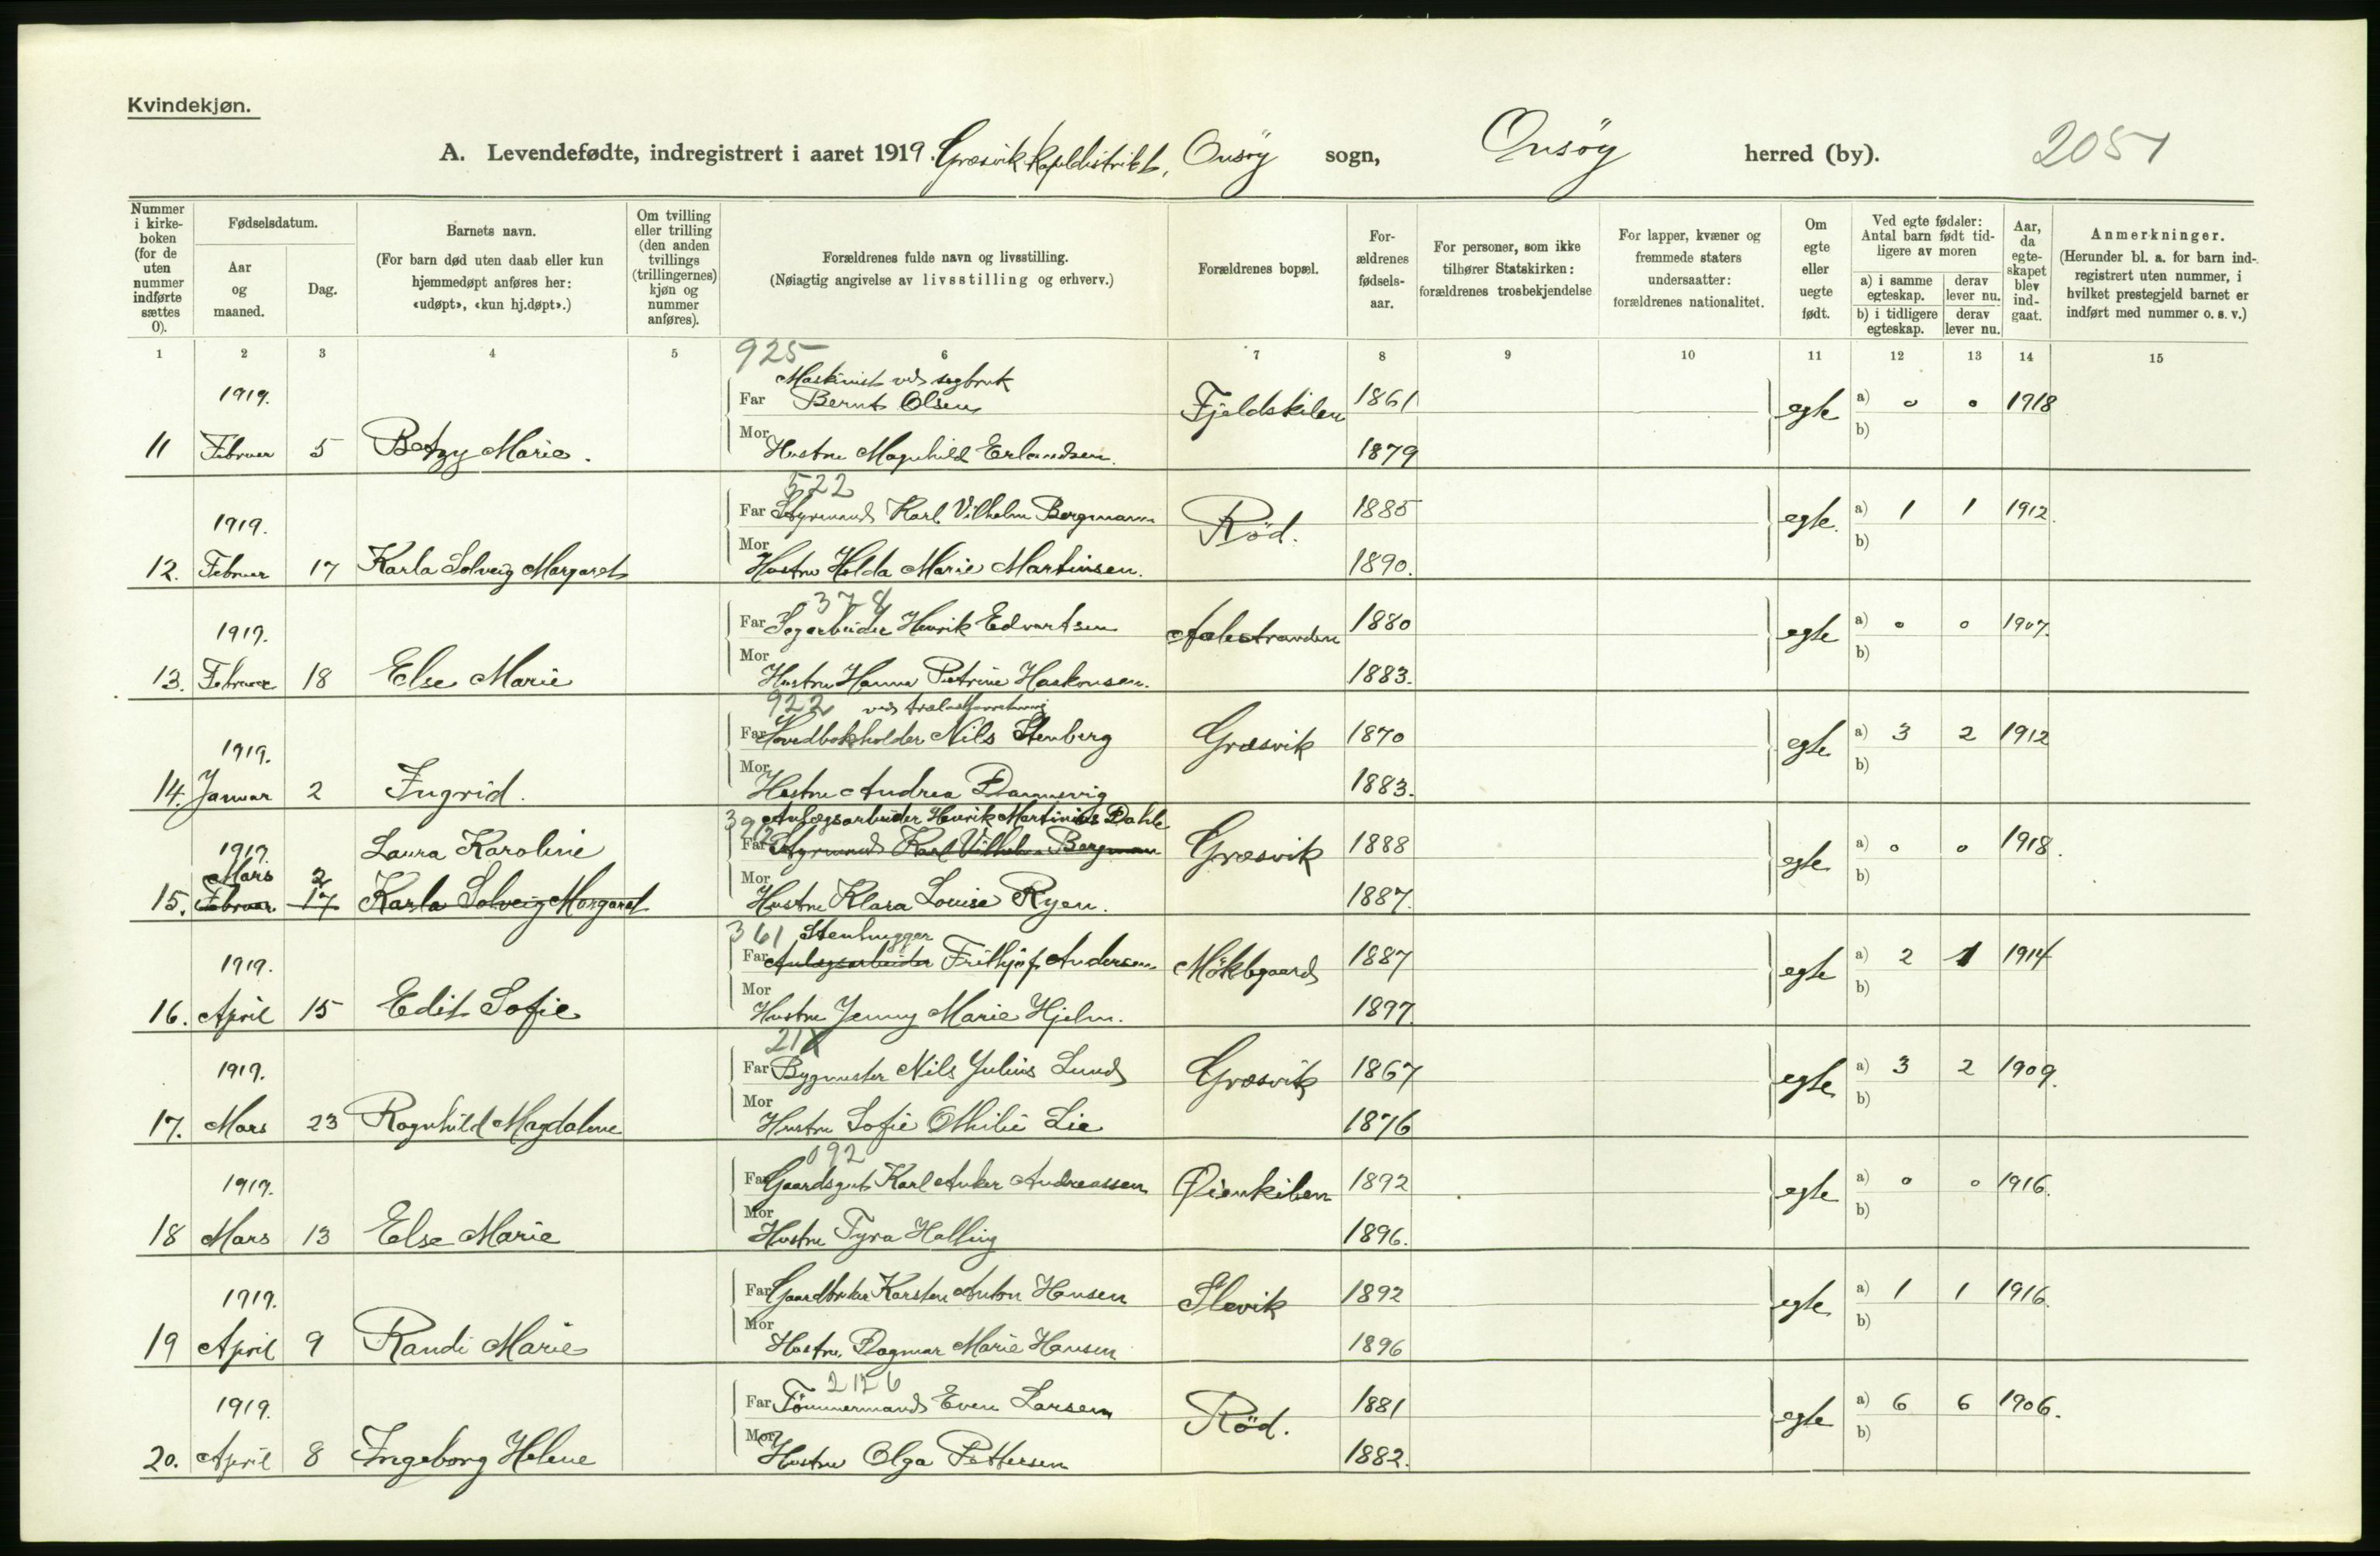 Kvindekjøn.
A. Levendefødte, indregistrert i aaret 1919. Græsvik Kapeldistrikt, Onsöy sogn, Onsöy herred (by). 2051
Nummer i kirke-boken (for de uten nummer indførte sættes 0).
Fødselsdatum.
Aar og maaned.
Dag.
Barnets navn.
(For barn død uten daab eller kun hjemmedøpt anføres her: «udøpt», «kun hj.døpt».)
Om tvilling eller trilling (den anden tvillings (trillingernes) kjøn og nummer anføres).
Forældrenes fulde navn og livsstilling.
(Nøiagtig angivelse av livsstilling og erhverv.)
Forældrenes bopæl.
For-ældrenes fødsels-aar.
For personer, som ikke tilhører Statskirken: forældrenes trosbekjendelse
For lapper, kvæner og fremmede staters undersaatter: forældrenes nationalitet.
Om egte eller uegte født.
Ved egte fødsler: Antal barn født tid-ligere av moren
a) i samme egteskap.
derav lever nu.
b) i tidligere egteskap.
derav lever nu.
Aar, da egte-skapet blev ind-gaat.
Anmerkninger.
(Herunder bl. a. for barn ind-registrert uten nummer, i hvilket prestegjeld barnet er indført med nummer o. s. v.)
1 2 3 4 5 6 7 8 9 10 11 12 13 14 15
925
Maskinist ved sagbruk
1919. Far Bernt Olsen Fjeldskilen 1861 egte a) 0 0 1918
b)
11 Februar 5 Betzy Marie. Mor Hustru Magnhild Erlandsen. 1879
522
1919. Far Styrmand Karl Vilhelm Bergmann Röd. 1885 egte. a) 1 1 1912.
b)
12. Februar 17 Karla Solveig Margaret Mor Hustru Holda Marie Martinsen. 1890.
378
1919. Far Sagarbeider Henrik Edvartsen Aalestranden 1880 egte a) 0 0 1907.
b)
13. Februar 18 Else Marie Mor Hustru Hanna Petrine Haakonsen. 1883.
922 ved trælastforretning
1919. Far Hovedbokholder Nils Stenberg Græsvik 1870 egte a) 3 2 1912
b)
14. Januar 2 Ingrid. Mor Hustru Andrea Dannevig 1883.
Anlægsarbeider Henrik Martinius Dahle
1919. Laura Karoline Far Styrmand Karl Vilhelm Bergman Græsvik 1888 egte a) 0 0 1918.
b)
Mars 2
15. Februar 17 Karla Solveig Margaret Mor Hustru Klara Louise Ryen. 1887.
361 Stenhugger
1919. Far Anlægsarbeider Frithjof Andersen Möklegaard 1887 egte a) 2 1 1914
b)
16. April 15 Edit Sofie Mor Hustru Jenny Marie Hjelm. 1897.
21X
1919. Far Bygmester Nils Julius Lund Græsvik 1867 egte a) 3 2 1909.
b)
17. Mars 23 Ragnhild Magdalene Mor Hustru Sofie Othilie Lie 1876
092
1919. Far Gaardsgut Karl Anker Andreassen Øienkilen 1892 egte a) 0 0 1916.
b)
18 Mars 13 Else Marie Mor Hustru Tyra Halling 1896.
1919. Far Gaardbruker Karsten Anton Hansen Slevik 1892 egte a) 1 1 1916.
b)
19 April 9 Randi Marie Mor Hustru Dagmar Marie Hansen 1896
2126
1919. Far Tömmermand Even Larsen Röd. 1881 egte a) 6 6 1906.
b)
20. April 8 Ingeborg Helene Mor Hustru Olga Pettersen 1882.